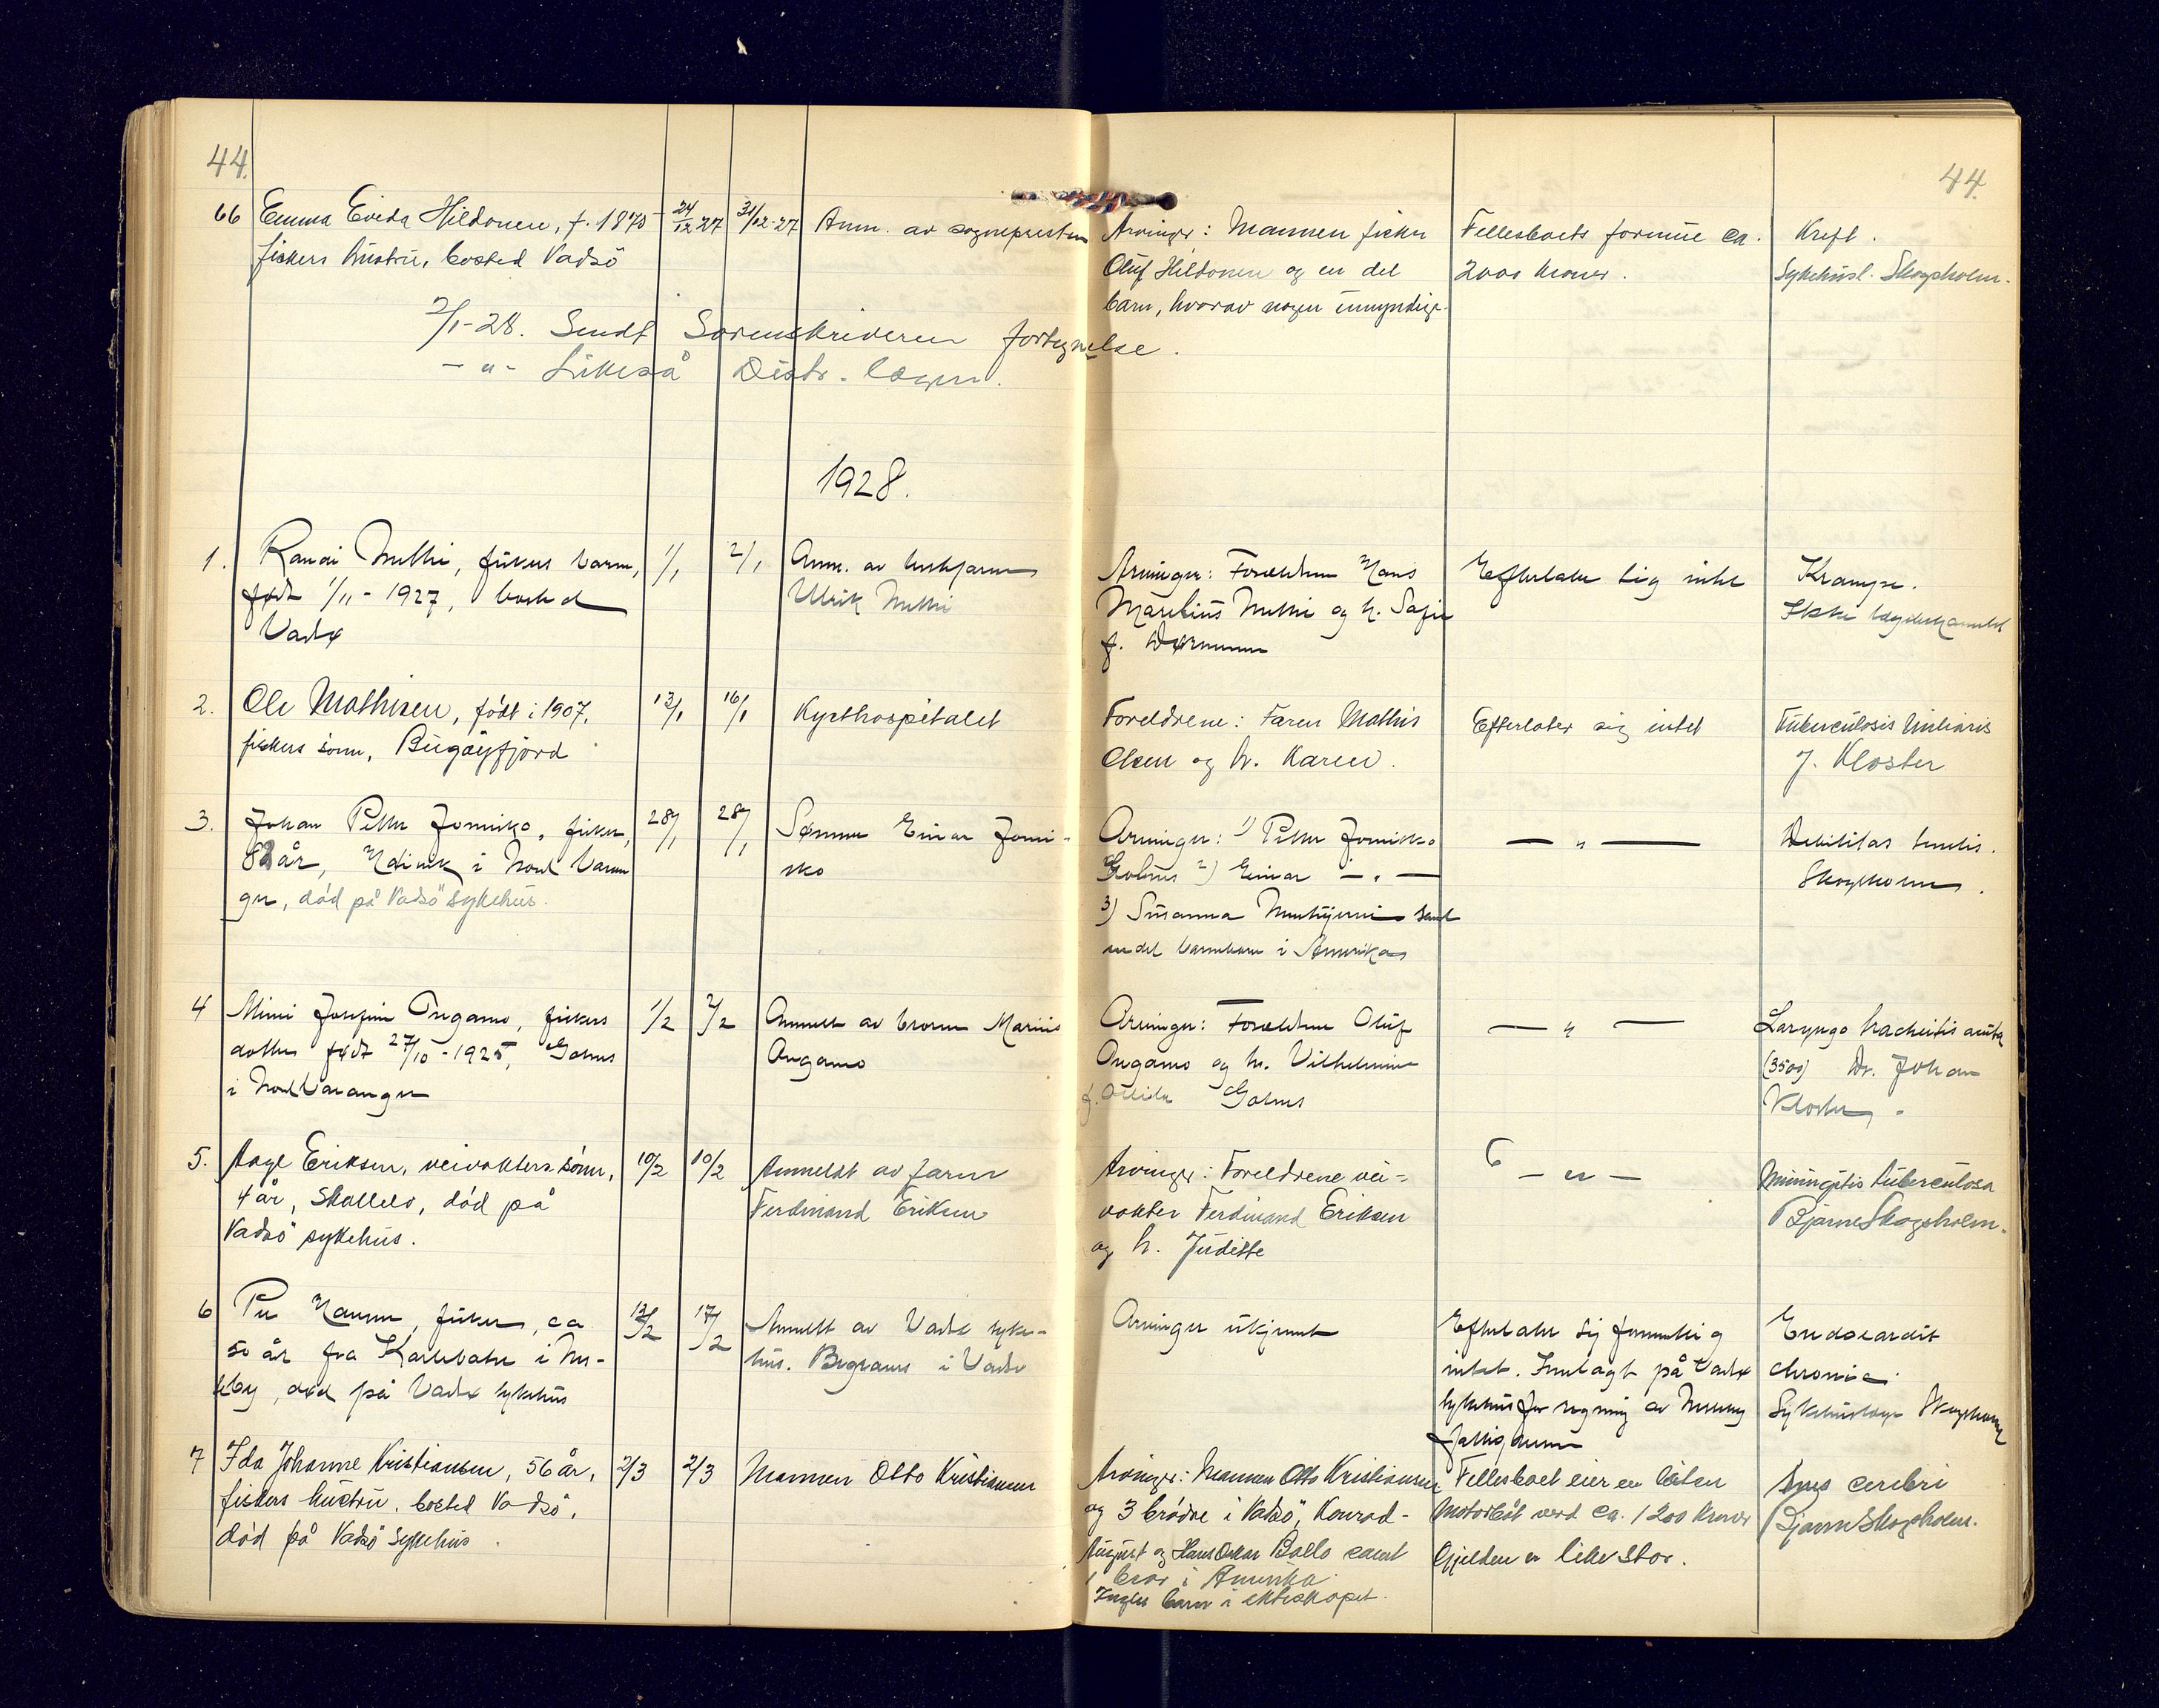 44.
44.
66 Emma Eveda Hildonen, f. 1870 24/12 27 31/12-27 Anm. av sognepresten Arvinger: Mannen fisker Fellesboets formue ca. Kreft.
fiskers hustru, bosted Vadsö Oluf Hildonen og en del 2000 kroner. Sykehusl. Skogsholm.
barn, hvorav nogen umyndige.
2/1-28. Sendt Sorenskriveren fortegnelse.
- " - Likeså Distr. lægen.
1928.
1. Randi Methi, fiskers barn, 1/1 2/1 Anm. av
født 1/11-1927, bosted Ulrik Methi
Vadsø
Arvinger: Foreldrene Hans Efterlater sig intet Krampe.
Marelius Methi og h. Ikke lægebehandlet
f.
2. Ole Mathisen, født i 1907, 13/1 16/1 Kysthospitalet Foreldrene: Faren Mathis Efterlater sig intet Tuberculosis miliaris
fiskers sönn, Bugöyfjord Olsen og h. Karen. J. Kloster
3. Johan Peter Jomisko, fisker, 28/1 28/1 Sønnen Einar Jomi-
82 år, i Nord Varan sko
ger, död på Vadsö sykehus.
Arvinger: 1) Peter Jomisko — " — Debilitas senilis.
Golnes 2) Einar — " — Skogsholm.
3) Susanna samt
en del barnebarn i Amerika
4 Mimi Josefine Ongamo, fiskers 1/2 2/2 Anmeldt av broren Marius
datter født 27/10-1925, Golnes Ongamo
i Nord Varanger
Arvinger: Foreldrene Oluf — " — Laryngo tracheitis acuta
Ongamo og h. Vilhelmine (3500) Dr. Johan
f. Golnes Kloster
5. Aage Eriksen, veivokters sönn, 10/2 10/2 Anmeldt av faren Arvinger: Foreldrene vei- — " — Miningitis tuberculosa
4 år, Skallelv, död på Ferdinand Eriksen vokter Ferdinand Eriksen Bjarne Skogsholm.
Vadsö sykehus. og h. Juditte
6 Per Hansen, fisker, ca 13/2 17/2 Anmeldt av Vadsø syke-
50 år fra Karlebotn i Nes- hus. Begraves i Vadsø
seby, død på Vadsø sykehus
Arvinger ukjent Efterlater sig formentlig Endocardit
intet. Innlagt på Vadsø chronica
sykehus for regning av Nesseby Sykehuslæge Skogsholm
fattigvesen
7 Ida Johanne Kristiansen, 56 år, 2/3 2/3 Mannen Otto Kristiansen Arvinger: Mannen Otto Kristiansen Fellesboet eier en liten cerebri
fiskers hustru, bosted Vadsö, og 3 brødre i Vadsö, Konrad- Motorbåt verd ca. 1200 kroner Bjarne Skogsholm.
död på Vadsö sykehus. August og Hans Oskar Ballo samt Gjelden er like stor.
1 bror i Amerika.
Ingen barn i ekteskapet.